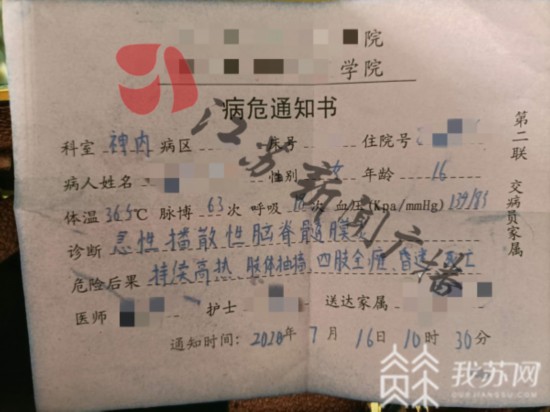 院
学院
病危通知书
科室 神内 病区 床号 住院号
病人姓名 性别 女 年龄 16
体温 36.5℃ 脉博 63 次 呼吸 次 血压(Kpa/mmHg) 139/83
诊断 急性播散性脑脊髓膜炎
危险后果 持续高热 肢体抽搐 四肢全瘫 昏迷 死亡
医师 护士 送达家属
通知时间: 2020年 7 月 16日 10时 30分
第二联 交病员家属
江苏新闻广播
我苏网
OURJIANGSU.COM